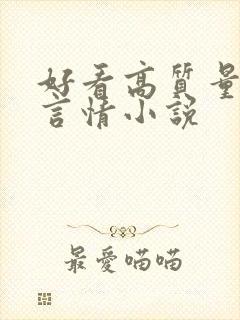 好看高質量
言情小說
最愛喵喵